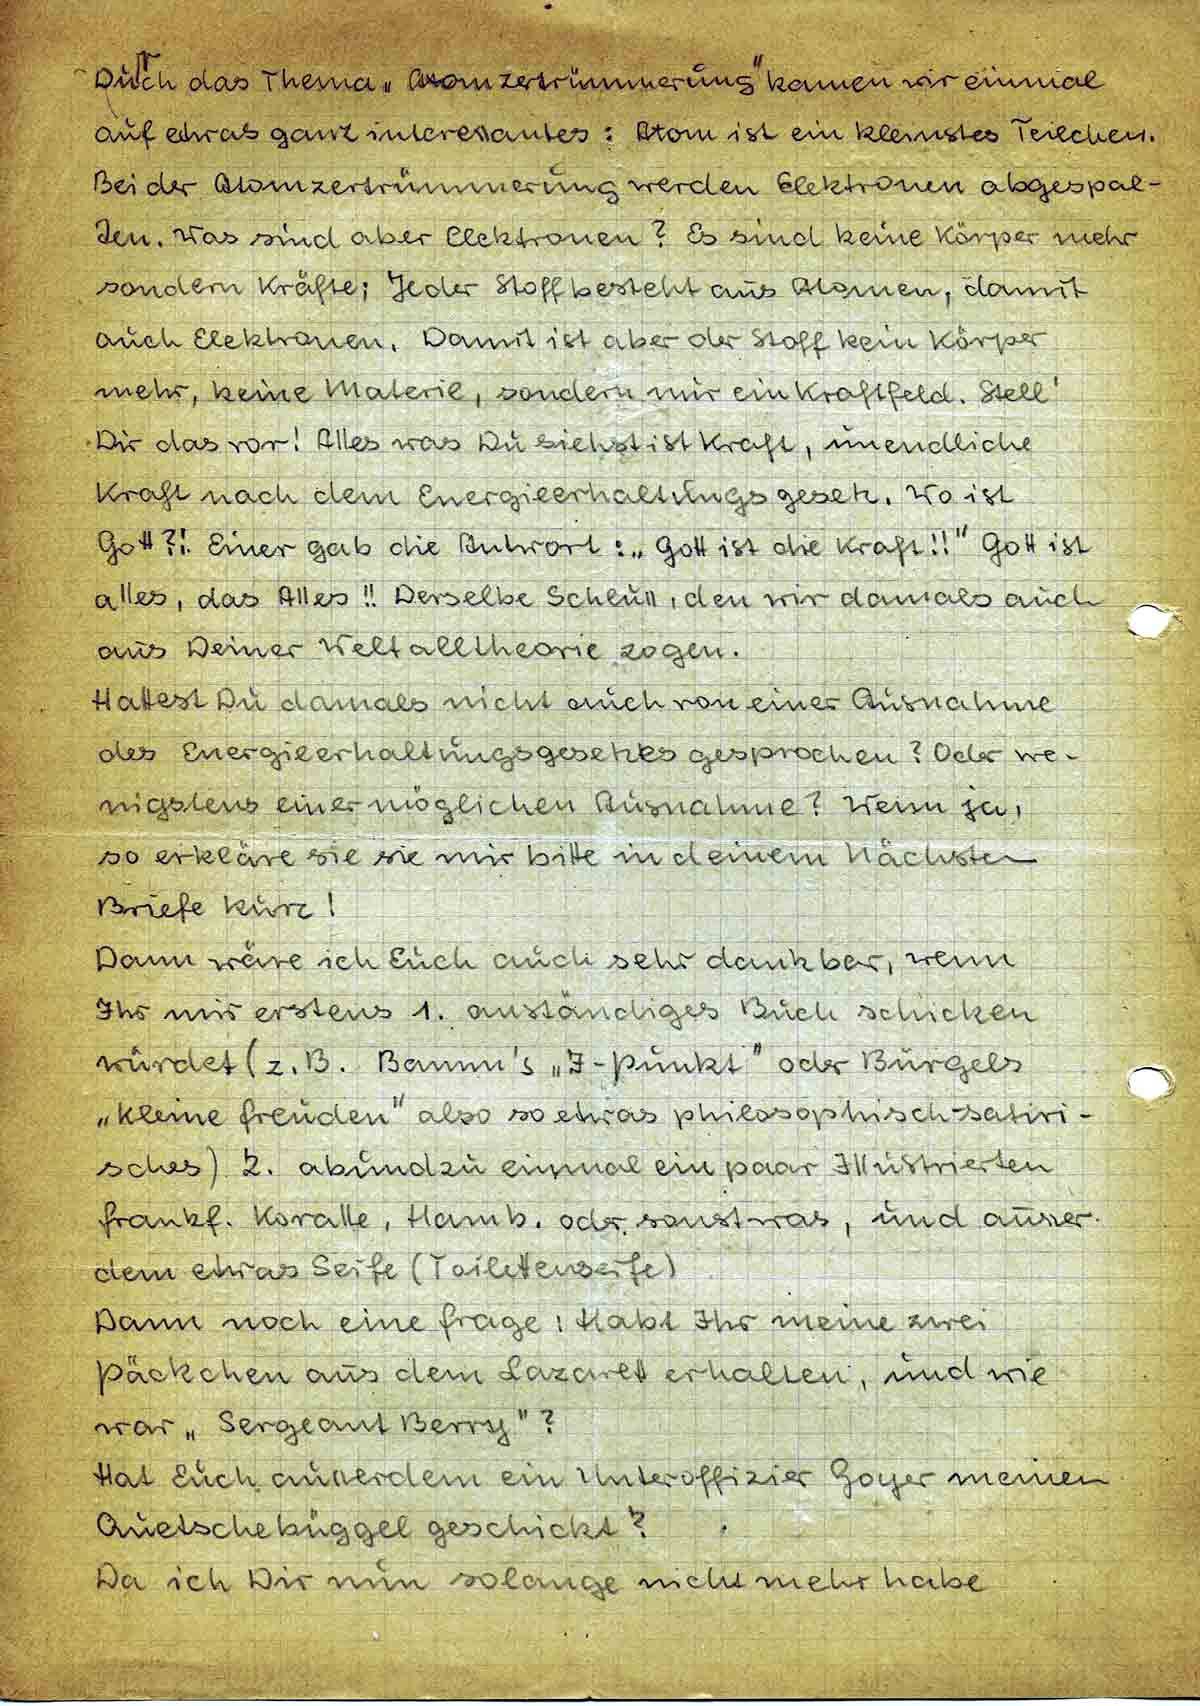 Durch das Thema „Atomzertrümmerung" kamen wir einmal
auf etwas ganz interessantes: Atom ist ein kleinstes Teilchen.
Bei der Atomzertrümmerung werden Elektronen abgespal-
ten. Was sind aber Elektronen? Es sind keine Körper mehr
sondern Kräfte; Jeder Stoff besteht aus Atomen, damit
auch Elektronen. Damit ist aber der Stoff kein Körper
mehr, keine Materie, sondern nur ein Kraftfeld. Stell'
Dir das vor! Alles was Du siehst ist Kraft, unendliche
Kraft nach dem Energieerhaltungsgesetz. Wo ist
Gott?!. Einer gab die Antwort: „Gott ist die Kraft!!" Gott ist
alles, das Alles!! Derselbe Schluss, den wir damals auch
aus Deiner Weltalltheorie zogen.
Hattest Du damals nicht auch von einer Ausnahme
des Energieerhaltungsgesetzes gesprochen? Oder we-
nigstens einer möglichen Ausnahme? Wenn ja,
so erkläre sie sie mir bitte in deinem Nächsten
Briefe kurz!
Dann wäre ich Euch auch sehr dankbar, wenn
Ihr mir erstens 1. anständiges Buch schicken
würdet (z.B. Bamm's „I-Punkt" oder Bürgels
„Kleine Freuden" also so etwas philosophisch-satiri-
sches) 2. abundzu einmal ein paar Illustrierten
Frankf. Koralle, Hamb. oder sonstwas, und ausser-
dem etwas Seife (Toilettenseife)
Dann noch eine Frage: Habt Ihr meine zwei
Päckchen aus dem Lazarett erhalten, und wie
war „Sergeant Berry"?
Hat Euch ausserdem ein Unteroffizier Goyer meinen
Quetschebüggel geschickt?
Da ich Dir nun solange nicht mehr habe